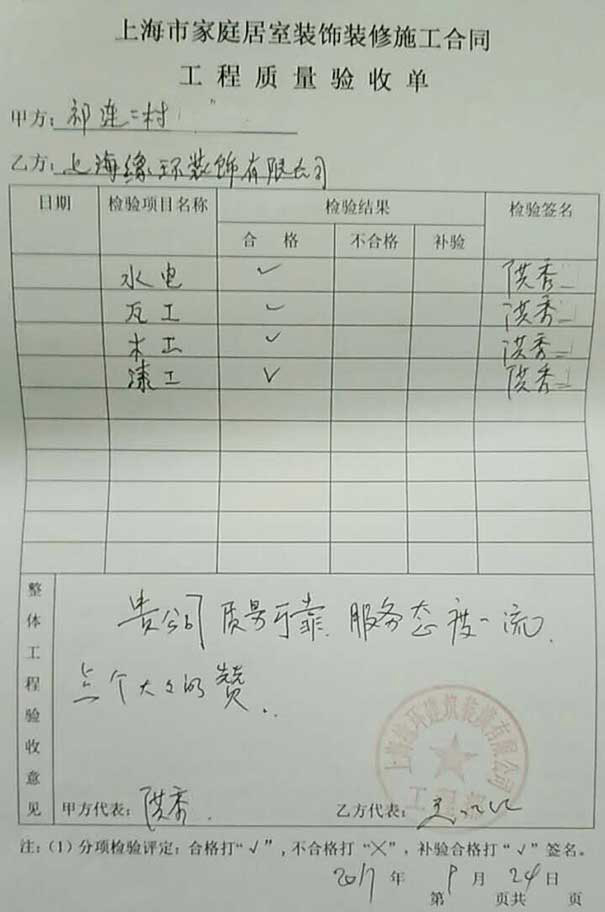 上海市家庭居室装饰装修施工合同
工程质量验收单
甲方：祁连二村
乙方：上海缘环装饰有限公司
日期 检验项目名称 检验结果 检验签名
合格 不合格 补验
水电 ✓ 洪秀
瓦工 ✓ 洪秀
木工 ✓ 洪秀
漆工 ✓ 洪秀
整体工程验收意见
贵公司质量可靠.服务态度一流.
点个大大的赞..
甲方代表：洪秀.
乙方代表：
注：(1) 分项检验评定：合格打“√”，不合格打“╳”，补验合格打“√”签名。
2017年9月24日
第 页共 页